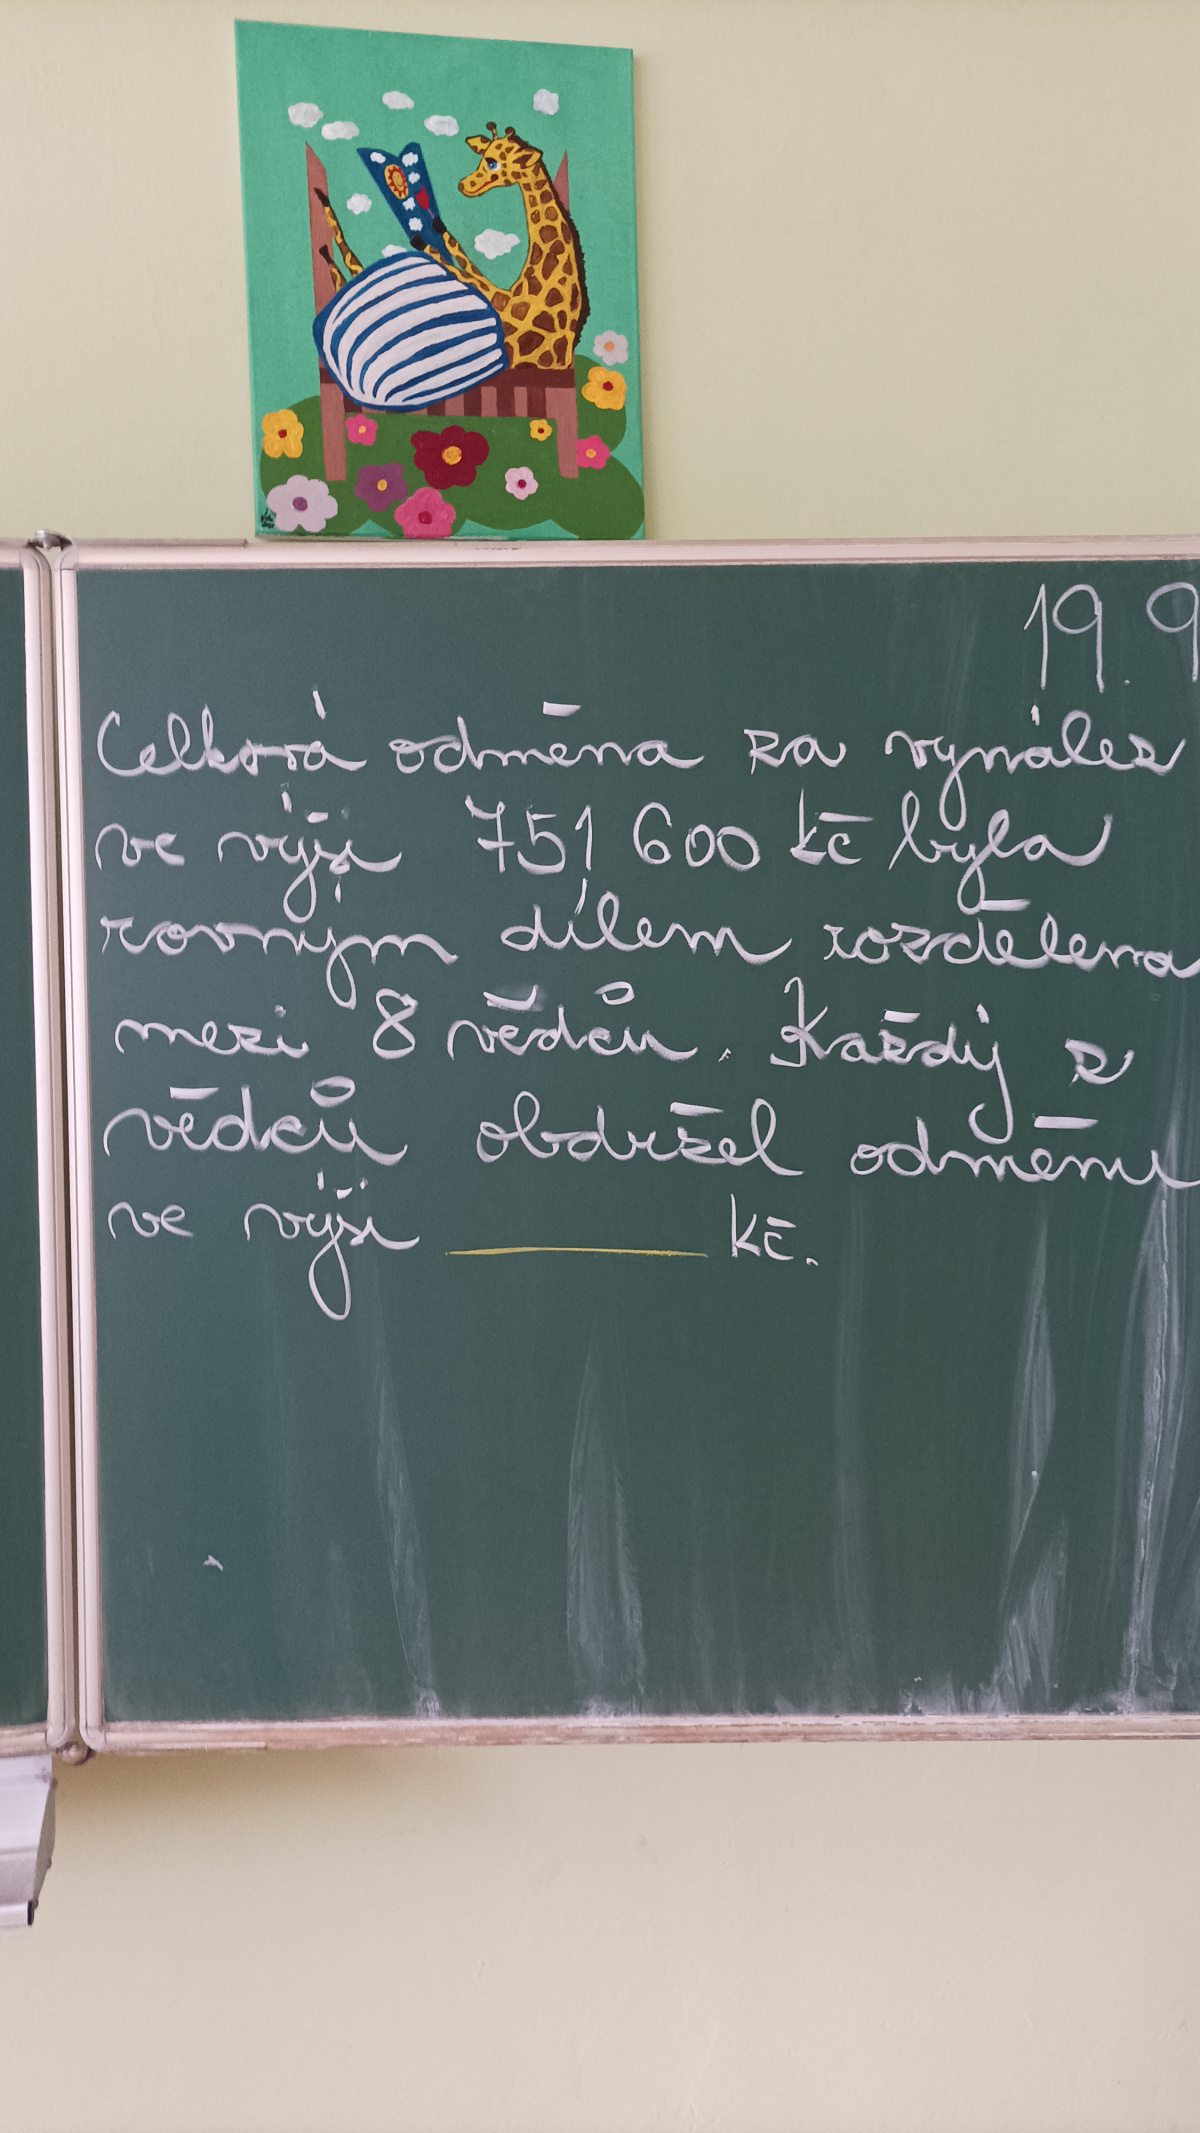 19. 9
Celková odměna za vynález
ve výši 751 600 Kč byla
rovným dílem rozdělena
mezi 8 vědců. Každý z
vědců obdržel odměnu
ve výši ________ Kč.